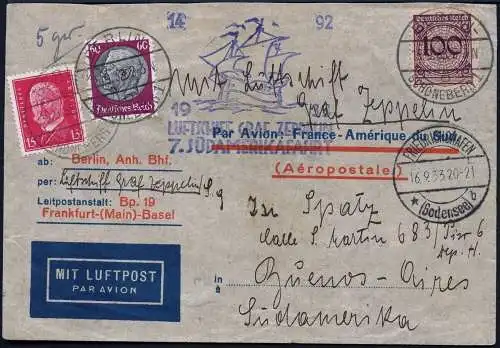 14 92
5 gr.
BERLIN
60 60
Deutsches Reich
15 15
Deutsches Reich
100
SCHÖNEBERG 1
mit Luftschiff
Graf Zeppelin
19
LUFTSCHIFF GRAF ZEPPELIN
7. SÜDAMERIKAFAHRT
Par Avion: France-Amérique du Sud
(Aéropostale)
FRIEDRICHSHAFEN
16.9.33.20-21
(Bodensee)
ab: Berlin, Anh. Bhf.
per: Luftschiff Graf Zeppelin/S.9
Leitpostanstalt: Bp. 19
Frankfurt-(Main)-Basel
MIT LUFTPOST
PAR AVION
Spatz
Calle S. Martin 683/Pier 6
Dep. H.
in Buenos-Aires
Südamerika